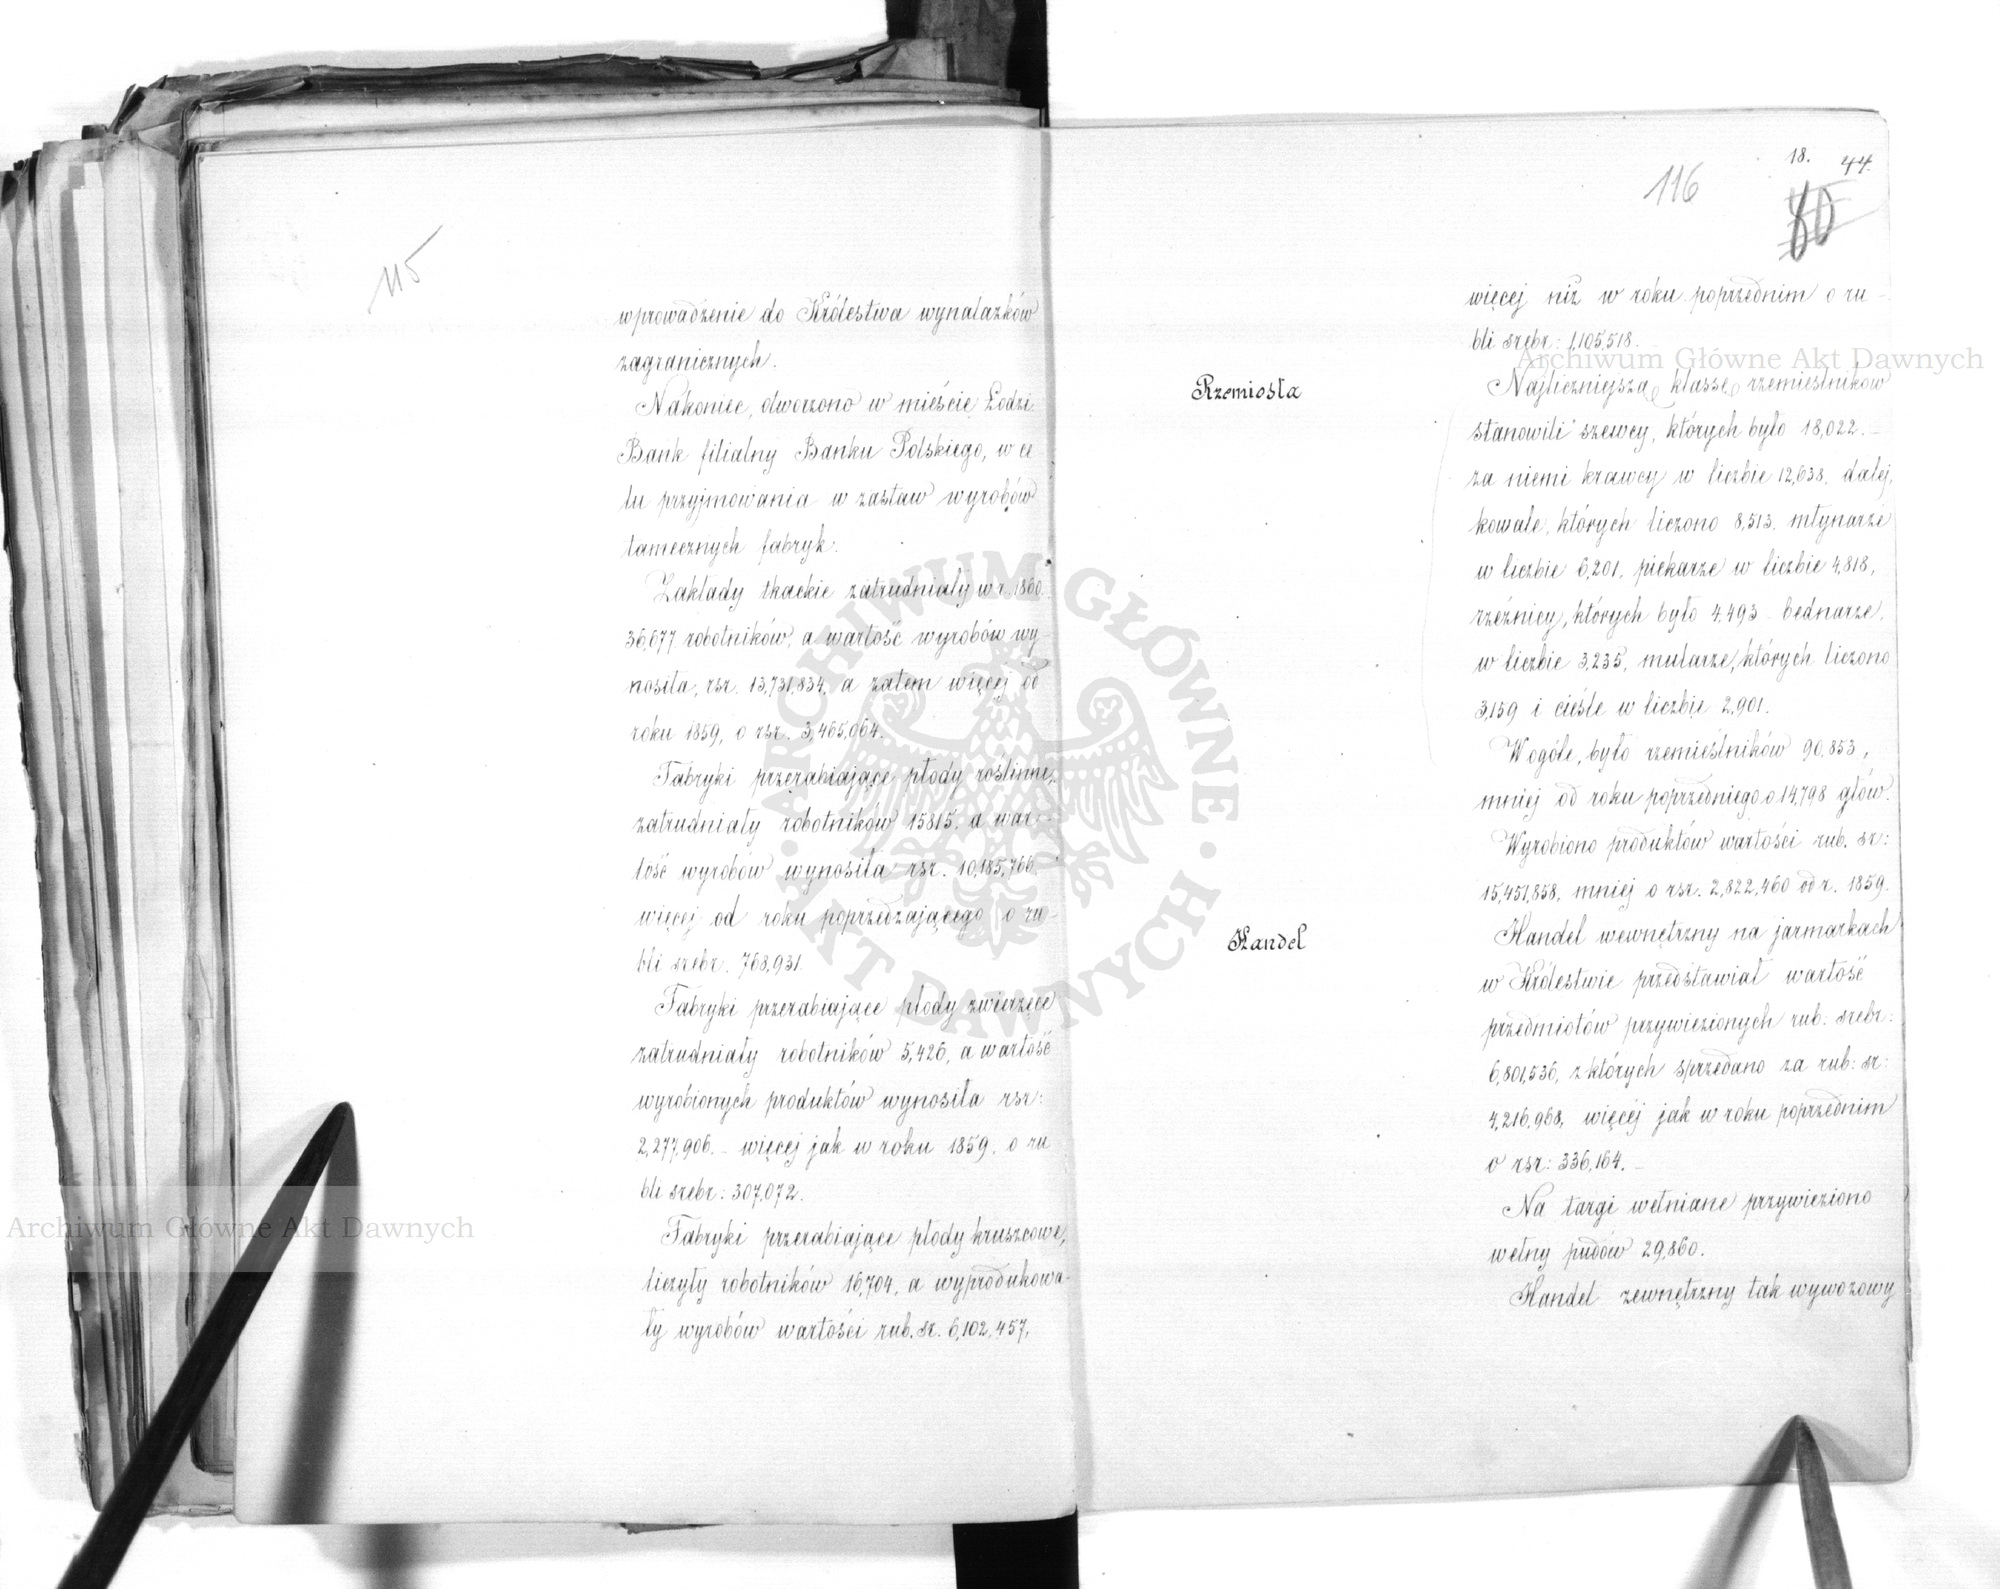 115
wprowadzenie do Królestwa wynalazków
zagranicznych.
Nakoniec, otworzono w mieście Łodzi
Bank filialny Banku Polskiego, w ce
lu przyjmowania w zastaw wyrobów
tamecznych fabryk.
Zakłady tkackie zatrudniały w r. 1860.
36,677 robotników, a wartość wyrobów wy-
nosiła, rsr. 13,731,834, a zatem więcej od
roku 1859, o rsr. 3,465,064.
Fabryki przerabiające płody roślinne,
zatrudniały robotników 15815. a war-
tość wyrobów wynosiła rsr. 10,185,766.
więcej od roku poprzedzającego o ru-
bli srebr. 768,931.
Fabryki przerabiające płody zwierzęce
zatrudniały robotników 5,426, a wartość
wyrobionych produktów wynosiła rsr:
2,277,906. – więcej jak w roku 1859. o ru
bli srebr: 307,072.
Fabryki przerabiające płody kruszcowe,
liczyły robotników 16,704, a wyprodukowa-
ły wyrobów wartości rub. sr. 6,102,457,
116
18.
44.
80
więcej niż w roku poprzednim o ru-
bli srebr: 1,105,518.
Rzemiosła
Najliczniejszą klassę rzemieślników
stanowili szewcy, których było 18,022. –
za niemi krawcy w liczbie 12,638, dalej,
kowale, których liczono 8,513. młynarze
w liczbie 6,201, piekarze w liczbie 4,818,
rzeźnicy, których było 4,493 – bednarze,
w liczbie 3,235, mularze, których liczono
3,159 i cieśle w liczbie 2,901.
Wogóle, było rzemieślników 90,853,
mniej od roku poprzedniego o 14,798 głów.
Wyrobiono produktów wartości rub. sr:
15,451,858, mniej o rsr. 2,822,460 od r. 1859.
Handel
Handel wewnętrzny na jarmarkach
w Królestwie przedstawiał wartość
przedmiotów przywiezionych rub: srebr:
6,801,536, z których sprzedano za rub: sr:
4,216,968, więcej jak w roku poprzednim
o rsr: 336,164. –
Na targi wełniane przywieziono
wełny pudów 29,860.
Handel zewnętrzny tak wywozowy
Archiwum Główne Akt Dawnych
Archiwum Główne Akt Dawnych
ARCHIWUM GŁÓWNE · AKT DAWNYCH ·